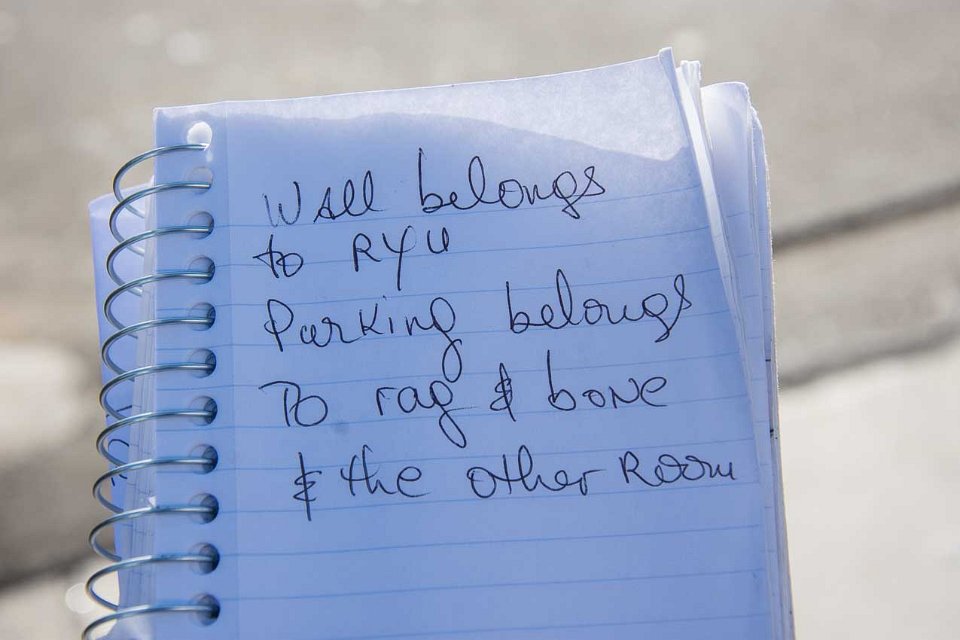 Wall belongs
to RYU
Parking belongs
To rag & bone
& the other Room